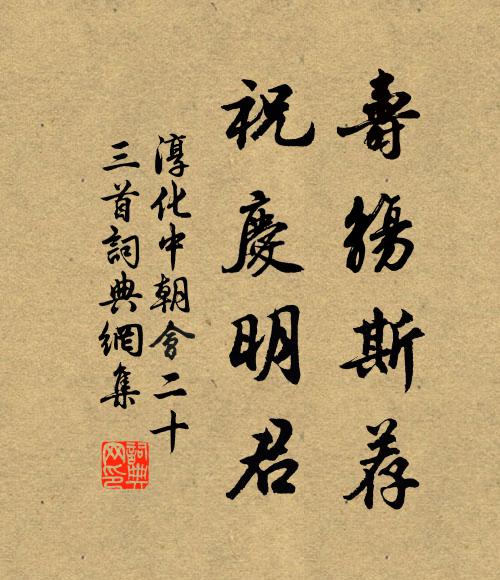 壽觴斯荐
祝慶明君
淳化中朝會二十
三首詞典網集
詞典
网印